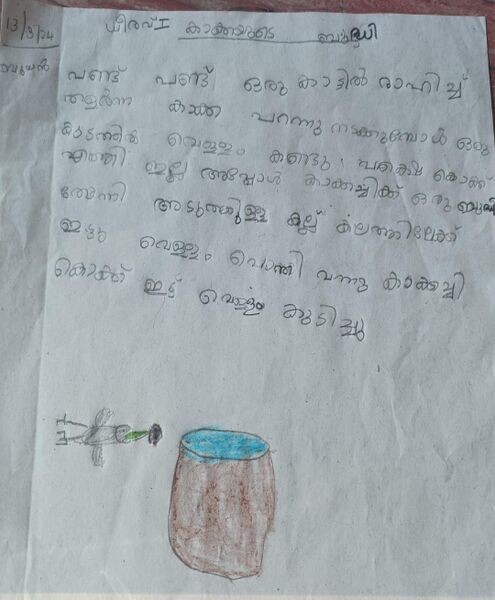 13/3/24
ബുധൻ
ധീരവ് I കാക്കയുടെ ബുദ്ധി
പണ്ട് പണ്ട് ഒരു കാട്ടിൽ രാഹിച്ച്
തളർന്ന കാക്ക പറന്നു നടക്കുമ്പോൾ ഒരു
കുടത്തിൽ വെള്ളം കണ്ടു പക്ഷെ കൊക്ക്
എത്തി ഇല്ല അപ്പോൾ കാക്കച്ചിക്ക് ഒരു ബുദ്ധി
തോന്നി അടുത്തുള്ള കല്ല് കലത്തിലേക്ക്
ഇട്ടു വെള്ളം പൊന്തി വന്നു കാക്കച്ചി
കൊക്ക് ഇട്ട് വെള്ളം കുടിച്ചു